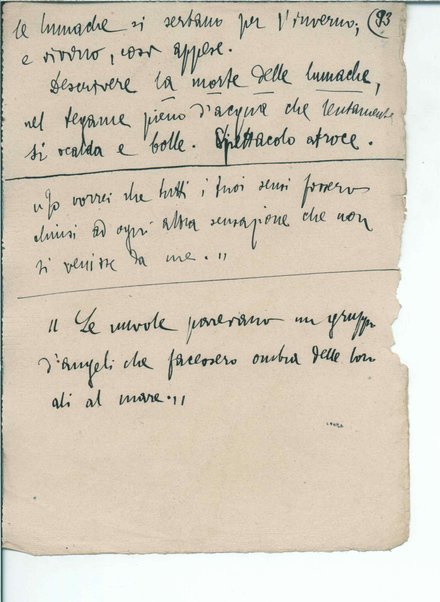 le lumache si serrano per l'inverno; 93
e vivono, così appese.
Descrivere la morte delle lumache,
nel tegame pieno d'acqua che lentamente
si scalda e bolle. Spettacolo atroce.
"Io vorrei che tutti i tuoi sensi fossero
chiusi ad ogni altra sensazione che non
ti venisse da me."
"Le nuvole parevano un gruppo
d'angeli che facessero ombra delle loro
ali al mare."